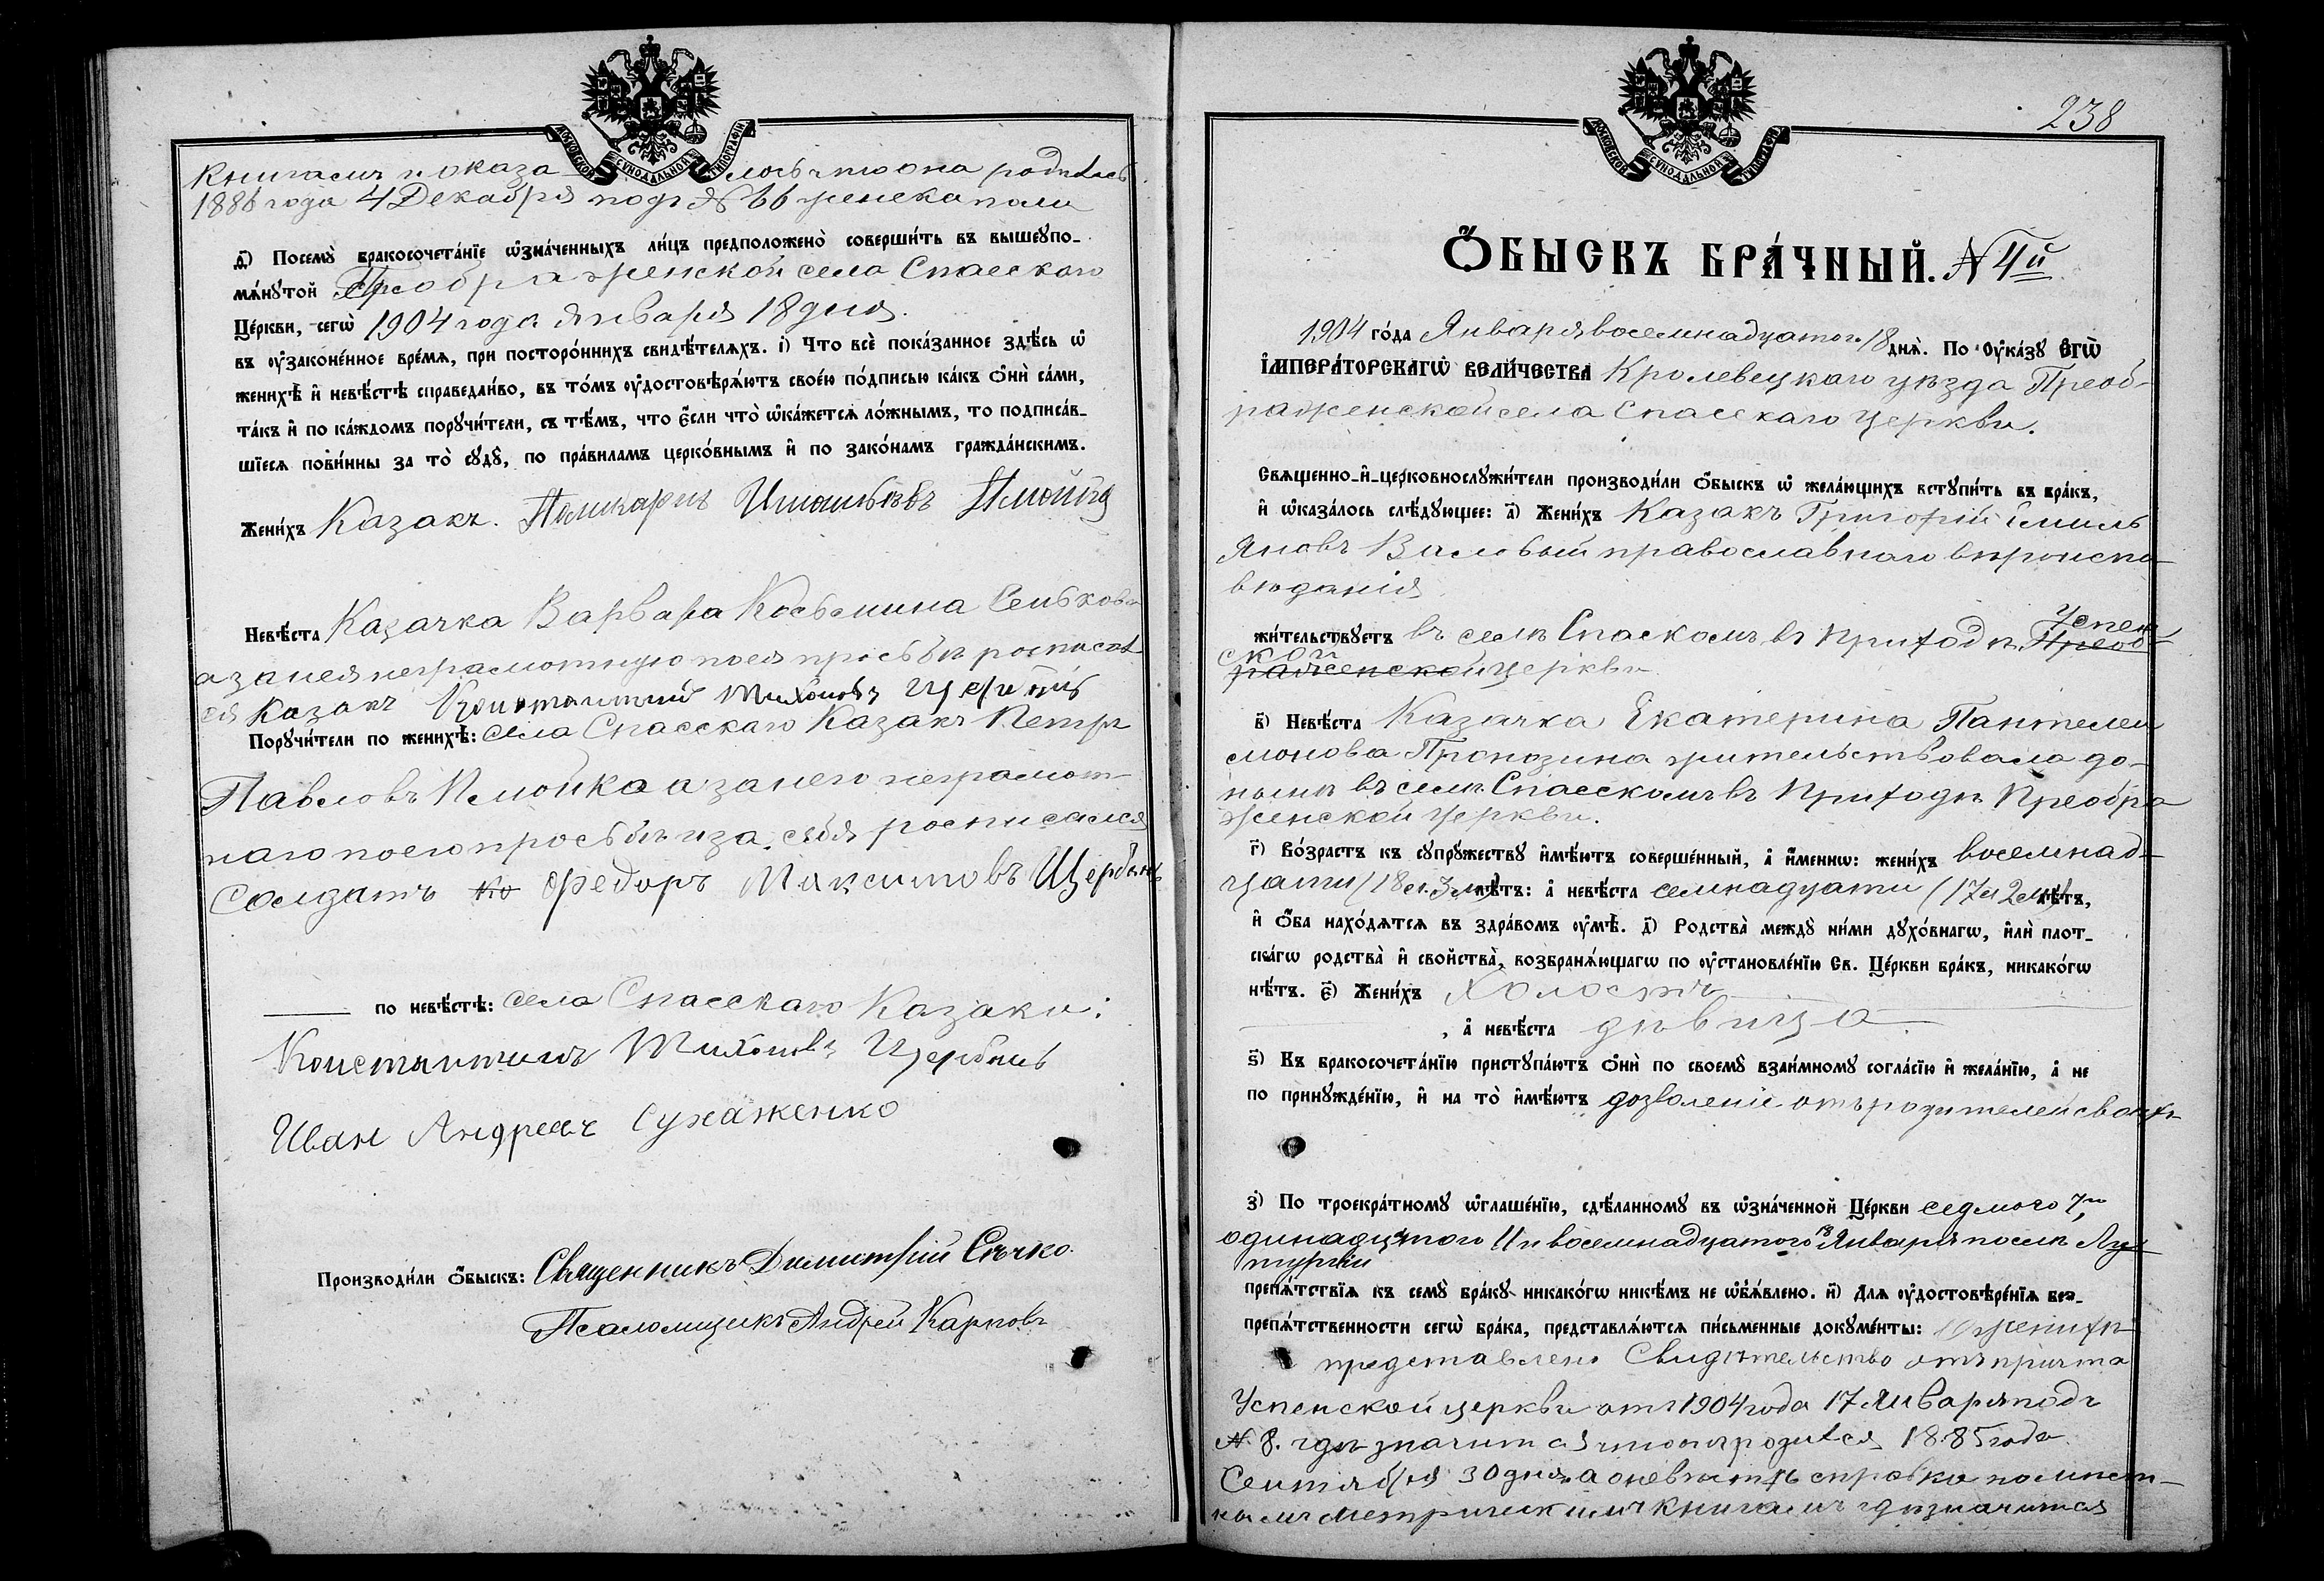 МОСКОВСКОЙ СѴНОДАЛЬНОЙ ТИПОГРАФІИ
книгамъ и оказа- лось что она родилась
1886 года 4 Декабря подъ № 66 женска пола
д҃) Посемꙋ̀ бракосочета́нїе ѡ҆зна́ченныхъ ли́цъ предположено̀ соверши́ть въ вышеꙋпо-
мѧ́нꙋтой Преображенской села Спасскаго
Це́ркви, сегѡ̀ 1904 года Января 18 дня.
въ ᲂу҆законе́нное вре́мѧ, при посторо́ннихъ свидѣ́телѧхъ. і҃) Что всѐ пока́занное здѣ́сь ѡ҆
женихѣ̀ и҆ невѣ́стѣ справедли́во, въ то́мъ ᲂу҆достовѣрѧ́ютъ свое́ю по́дписью ка́къ ѻ҆нѝ са́ми,
та́къ и҆ по ка́ждомъ порꙋчи́тели, съ тѣ́мъ, что є҆́сли что̀ ѡ҆ка́жетсѧ ло́жнымъ, то подписа́в-
шїесѧ пови́нны за то̀ сꙋдꙋ̀, по пра́виламъ церко́внымъ и҆ по зако́намъ гражда́нскимъ.
Жени́хъ Казакъ.
Невѣ́ста Казачка Варвара Косьмина
а за нея неграмотную по ея просьбѣ росписал-
ся Казакъ Константинъ Тихоновъ Щербань
Порꙋчи́тели по женихѣ̀: села Спасскаго Казакъ Петръ
Павловъ Плюйка а за него неграмот-
наго по его просьбѣ и за себя росписался
Солдатъ Федоръ Максимовъ Щербань
по невѣ́стѣ: села Спасскаго Казаки:
Константинъ Тихоновъ Щербань
Иван Андреевъ Сухаженко
Производи́ли ѻ҆́быскъ: Священникъ Димитрій Сѣчко.
Псаломщикъ Андрей Карповъ
238
МОСКОВСКОЙ СѴНОДАЛЬНОЙ ТИПОГРАФІИ
Ѻ҆́БЫСКЪ БРА́ЧНЫЙ. № 4й
1904 го́да Января восемнадцатаго 18 днѧ̀. По ᲂу҆ка́зꙋ Є҆ГѠ̀
І҆МПЕРА́ТОРСКАГѠ ВЕЛИ́ЧЕСТВА Кролевецкаго уѣзда Преоб-
раженской села Спасскаго церкви.
Свѧще́нно-и҆-церковнослꙋжи́тели производи́ли ѻ҆́быскъ ѡ҆ жела́ющихъ встꙋпи́ть въ бра́къ,
и҆ ѡ҆каза́лось слѣ́дꙋющее: а҃) Жени́хъ Казакъ Григорій Емиль
яновъ Валовый православнаго вѣроиспо-
вѣданія
жи́тельствꙋетъ въ селѣ Спаскомъ въ приходѣ Успен
Преоб-
ской
раженской церкви.
в҃) Невѣ́ста Казачка Екатерина Пантелеи
монова Пронозина жительствовала до-
нынѣ въ селѣ Спасскомъ въ приходѣ Преобра
женской церкви.
г҃) Во́зрастъ къ сꙋпрꙋ́жествꙋ и҆мѣ́ютъ соверше́нный, а҆ и҆́менно: жени́хъ восемнад-
цати (18 л. 3 м.) лѣ́тъ: а҆ невѣ́ста семнадцати (17 л 2 м.) лѣ́тъ,
и҆ ѻ҆́ба нахо́дѧтсѧ въ здра́вомъ ᲂу҆мѣ̀. д҃) Родства̀ междꙋ̀ ни́ми дꙋхо́внагѡ, и҆лѝ плот-
ска́гѡ родства̀ и҆ свойства̀, возбранѧ́ющагѡ по ᲂу҆становле́нїю Св. Це́ркви бра́къ, никако́гѡ
нѣ́тъ. є҃) Жени́хъ Холостъ
, а҆ невѣ́ста дѣвица
ѕ҃) Къ бракосочета́нїю пристꙋпа́ютъ ѻ҆нѝ по своемꙋ̀ взаи́мномꙋ согла́сїю и҆ жела́нїю, а҆ не
по принꙋжде́нїю, и҆ на то̀ и҆мѣ́ютъ дозволеніе отъ родителей своихъ
з҃) По троекра́тномꙋ ѡ҆глаше́нїю, сдѣ́ланномꙋ въ ѡ҆зна́ченной Це́ркви седмого 7,
одинадцатого 11 и восемнадцатого 18 Января послѣ Ли-
тургіи
препѧ́тствїѧ къ семꙋ̀ бра́кꙋ никако́гѡ никѣ́мъ не ѡ҆б̾ѧ́влено. и҃) Длѧ ᲂу҆достовѣре́нїѧ без-
препѧ́тственности сегѡ̀ бра́ка, представлѧ́ютсѧ пи́сьменные докꙋме́нты: О женихѣ
представлено Свидѣтельство отъ причта
Успенской церкви отъ 1904 года 17 Января подъ
№ 8. гдѣ значится что онъ родился 1885 года
Сентября 30 дня, а о невѣстѣ справка по мѣст-
нымъ Метрическимъ книгамъ гдѣ значится